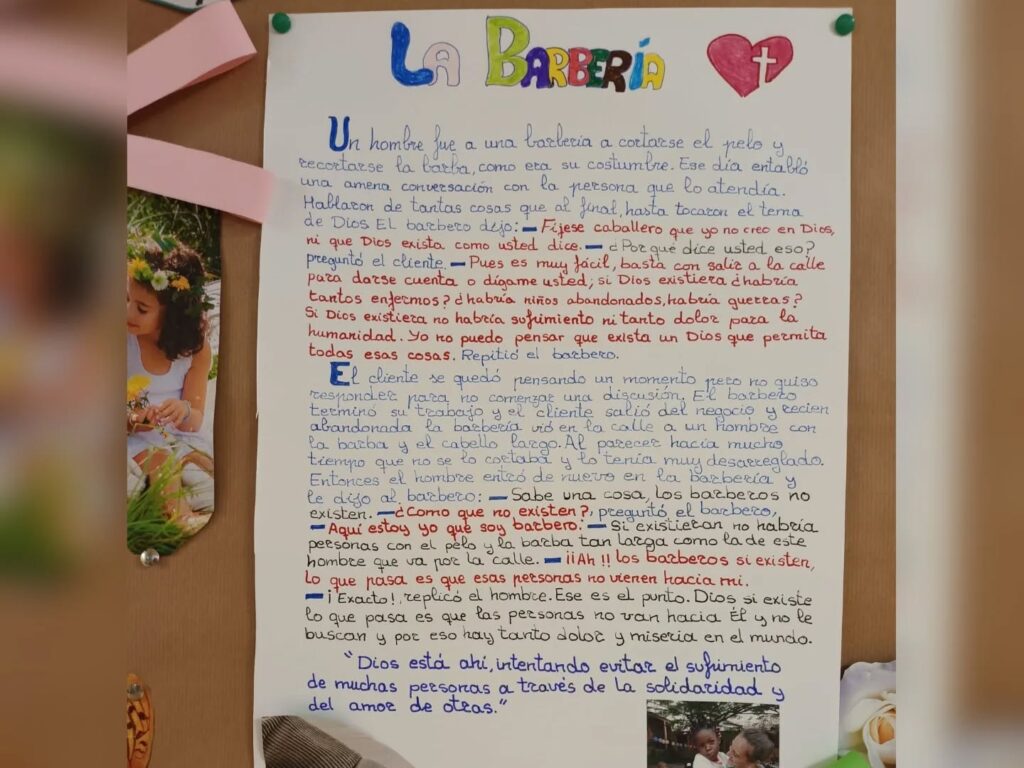 LA BARBERÍA
Un hombre fue a una barbería a cortarse el pelo y
recortarse la barba, como era su costumbre. Ese día entabló
una amena conversación con la persona que lo atendía.
Hablaron de tantas cosas que al final, hasta tocaron el tema
de Dios El barbero dijo: — Fíjese caballero que yo no creo en Dios,
ni que Dios exista como usted dice. — ¿Por qué dice usted eso?
preguntó el cliente. — Pues es muy fácil, basta con salir a la calle
para darse cuenta o dígame usted, si Dios existiera ¿habría
tantos enfermos? ¿habría niños abandonados, habría guerras?
Si Dios existiera no habría sufrimiento ni tanto dolor para la
humanidad. Yo no puedo pensar que exista un Dios que permita
todas esas cosas. Repitió el barbero.
El cliente se quedó pensando un momento pero no quiso
responder para no comenzar una discusión. El barbero
terminó su trabajo y el cliente salió del negocio y recien
abandonada la barbería vió en la calle a un hombre con
la barba y el cabello largo. Al parecer hacía mucho
tiempo que no se lo cortaba y lo tenía muy desarreglado.
Entonces el hombre entró de nuevo en la barbería y
le dijo al barbero: — Sabe una cosa, los barberos no
existen. — ¿Como que no existen?, preguntó el barbero,
— Aquí estoy yo que soy barbero: — Si existieran no habría
personas con el pelo y la barba tan larga como la de este
hombre que va por la calle. — ¡¡Ah!! los barberos si existen,
lo que pasa es que esas personas no vienen hacia mi.
— ¡Exacto!, replicó el hombre. Ese es el punto. Dios si existe
lo que pasa es que las personas no van hacia Él y no le
buscan y por eso hay tanto dolor y miseria en el mundo.
"Dios está ahí, intentando evitar el sufrimiento
de muchas personas a través de la solidaridad y
del amor de otras."